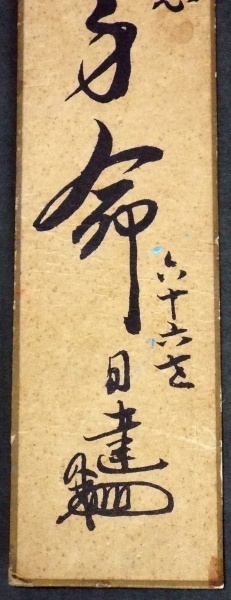 身命
六十六世
日達